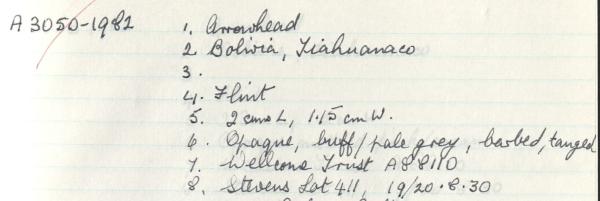 A3050-1982 1. Arrowhead
2 Bolivia, Tiahuanaco
3.
4. Flint
5. 2 cms L, 1.15 cm W.
6. Opaque, buff/pale grey, barbed, tanged
7. Wellcome Trust A88110
8. Stevens Lot 411, 19/20.8.30